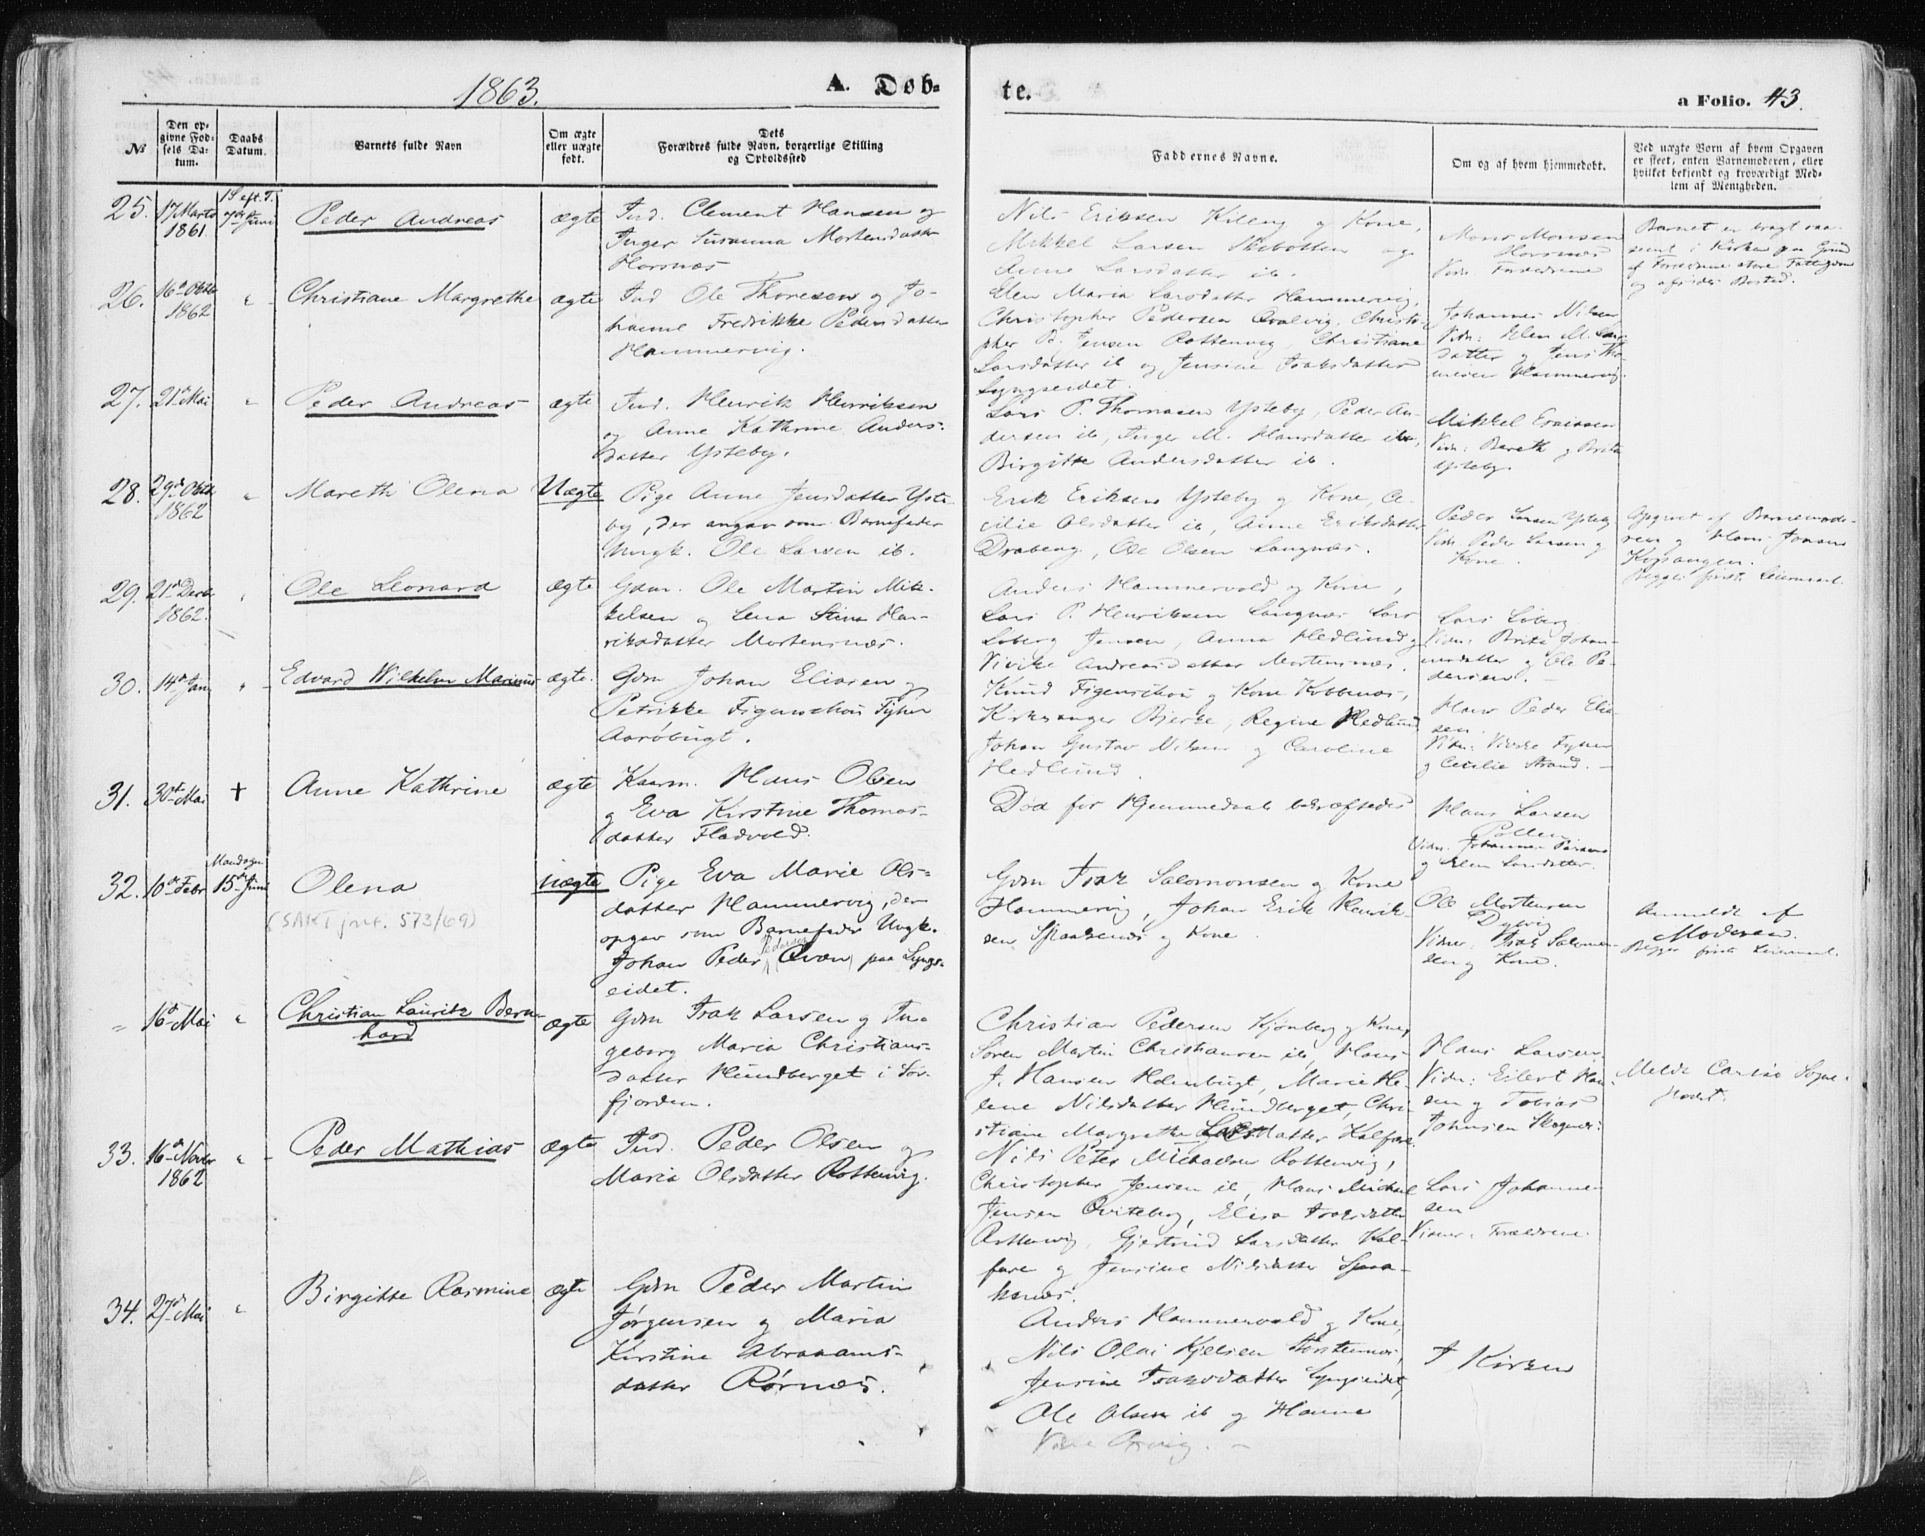 1863.
A. Døb-
te.
a Folio. 43.
№
Den op-
givne Fød-
sels Da-
tum.
Daabs
Datum.
Barnets fulde Navn
Om ægte
eller uægte
født.
Dets
Forældres fulde Navn, borgerlige Stilling
og Opholdssted
Faddernes Navne.
Om og af hvem hjemmedøbt.
Ved uægte Børn af hvem Opgaven
er skeet, enten Barnemoderen, eller
hvilket bekjendt og troværdigt Med-
lem af Menigheden.
25.
17 Marts
1861.
1 S eft. T.
7de Juni
Peder Andreas
ægte
Ind. Clement Hansen og
Inger Susanna Mortensdatter
Horsnæs
Nils Eriksen Killeng og Kone,
Mikkel Larsen Skibotten og
Anne Larsdatter ib.
Mons Monsen
Horsnæs
Vidn. Forældrene
Barnet er bragt saa
seent i Kirken paa Grund
af Forældrene store Fattigdom
og afsides Bosted.
26.
16de Oktbr
1862
"
Christiane Margrethe
ægte
Ind Ole Thoresen og Jo-
hanne Fredrikke Pedersdatter
Hammervig.
Elen Maria Larsdatter Hammervig,
Christopher Pedersen Qvalvig, Christo-
pher P. Jensen Rottenvig, Christiane
Larsdatter ib og Jensine Isaksdatter
Lyngseidet.
Johannes Nilsen
Vidn: Elen M. Lars-
datter og Jens Tho-
mesen Hammervig.
27.
21de Mai
"
Peder Andreas
ægte
Ind. Henrik Henriksen
og Anne Kathrine Anders-
datter Ysteby.
Lars P. Thomasen Ysteby, Peder An-
dersen ib, Inger M. Hansdatter ib,
Birgitte Andersdatter ib.
Mikkel
Vidn: Bereth og Brita
Ysteby.
28.
29de Oktb
1862
"
Mareth Olena
Uægte
Pige Anne Jensdatter Yste-
by, der angav som Barnefader
Ungk. Ole Larsen ib.
Erik Eriksen Ysteby og Kone, Ce-
cilie Olsdatter ib, Anne Eriksdatter
Draberg, Ole Olsen Langnæs.
Peder Larsen Ysteby
Vidn. Peder Larsen og
Kone.
Opgivet af Barnemode-
ren og Hans Jonsen
Kopangen.
Begges første Leiermaal.
29.
21de Decb
1862.
"
Ole Leonard
ægte
Gdm. Ole Martin Mik-
kelsen og Lena Stina Hen-
riksdatter Mortensnæs.
Anders Hammervold og Kone,
Lars P. Henriksen Langnæs Lars
Løberg Jensen, Anna Hedlund og
Vivike Andreasdatter Mortensnæs.
Lars Løberg
Vidn: Brita Johan-
nesdatter og Ole Pe-
dersen.
30.
14de Jan
"
Edvard Wilhelm Marinus
ægte.
Gdm Johan Eliasen og
Petrikke Figenschou Fyhn
Aarøbugt.
Knud Figenschou og Kone Kobbenæs,
Kirkesanger Bjerke, Regine Hedlund
Johan Gustav Nilsen og Caroline
Hedlund.
Hans Peder Elia-
sen.
Vidn: Vivike Fyhn
og Cecilie Strand.
31.
30te Mai
+
Anne Kathrine
ægte
Kaarm. Hans Olsen
og Eva Kirstine Thomas-
datter Fladvold.
Død før Hjemmedaab bekræftedes
Hans Larsen
Pollen.
Vidn. Johannes
og Elen Larsdatter.
32.
10de Febr
Mandagen
15de Juni
Olena
(SAKT jnr. 573/69)
uægte
Pige Eva Marie Ols-
datter Hammervig, der
opgav som Barnefader Ungk.
Johan Peder (Pedersen) Qvæn paa Lyngs-
eidet.
Gdm Isak Salomonsen og Kone
Hammervig, Johan Erik Henrik-
sen Spaakenes og Kone.
Ole Mortensen
Dybvig
Vidner: Isak Salomon-
sen og Kone.
Anmeldt af
Moderen.
Begges første Leiermaal.
"
16de Mai
"
Christian Lauritz Bern-
hard
ægte
Gdm Isak Larsen og In-
geborg Maria Christians-
datter Hundberget i Sør-
fjorden.
Christian Pedersen Hjønberg og Kone,
Søren Martin Christiansen ib, Hans
J. Hansen Holmbugt, Marie He-
lene Nilsdatter Hundberget, Chri-
stiane Margrethe Larsdatter Kalfare
Hans Larsen
Vidn: Eilert Han-
sen og Tobias
Johnsen Skognæs:
Meldt Carlsø Sogne-
kald.
33.
16de Novbr
1862
"
Peder Mathias
ægte
Ind. Peder Olsen og
Maria Olsdatter Rottenvig.
Nils Peter Michaelsen Rottenvig,
Christopher Jensen ib, Hans Michael
Jensen Qviteberg, Elisa Isaksdatter
Rottenvig, Gjertrud Larsdatter Kal-
fare og Jensine Nilsdatter Spaa-
kenæs.
Lars Johanne-
sen
Vidner: Forældrene.
34.
27de Mai
"
Birgitte Rasmine
ægte
Gdm Peder Martin
Jørgensen og Maria
Kirstine Abrahams-
datter Rørnæs.
Anders Hammervold og Kone,
Nils Olai Kjelsen Storstennæs,
Jensine Isaksdatter Lyngseidet,
Ole Olsen ib og Hanna
I Kirken